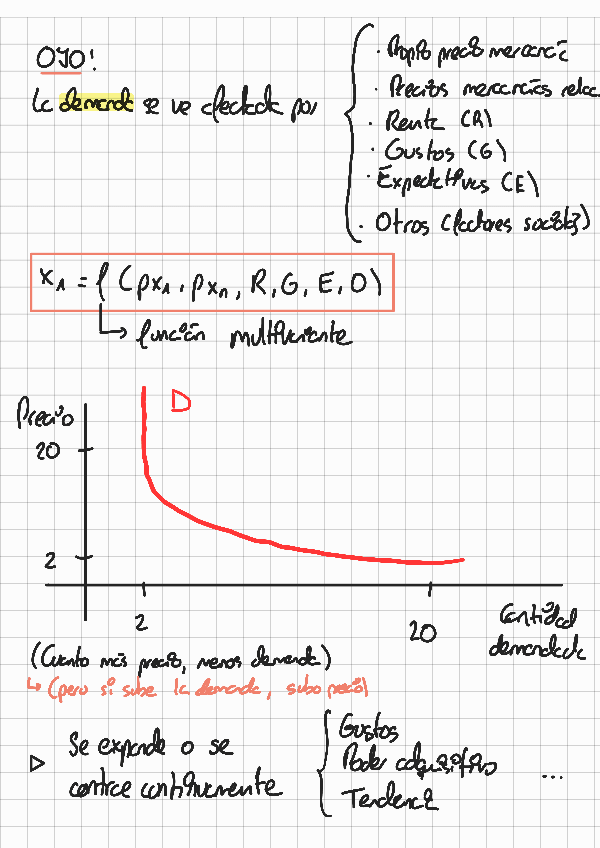 OJO!
La demanda se ve afectada por
· Propio precio mercancía
· Precios mercancías relac
· Renta (R)
· Gustos (G)
· Expectativas (E)
· Otros (factores sociales)
x₁ = f (px₁, pxₙ, R, G, E, O)
↳ función multivariante
D
Precio
20
2
2
20
Cantidad
demandada
(Cuanto más precio, menos demanda)
↳ (pero si sube la demanda, subo precio)
▷ Se expande o se
contrae continuamente
Gustos
Poder adquisitivo
Tendencia
...